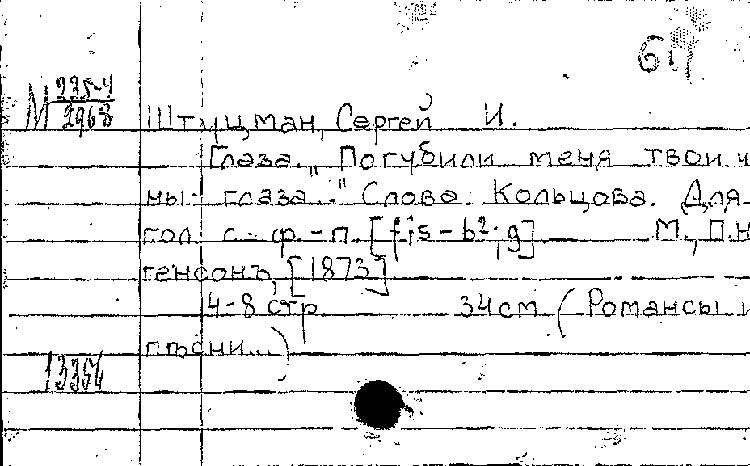 М 225-4
2968
Штуцман, Сергей И.
Глаза. „Погубили меня твои ч
ны- глаза..." Слова Кольцова. Для
гол. с ф.-п. [fis-b²; g] М., П. Н
генсонъ, [1873]
4-8 стр. 34 см (Романсы и
пѣсни...)
13356